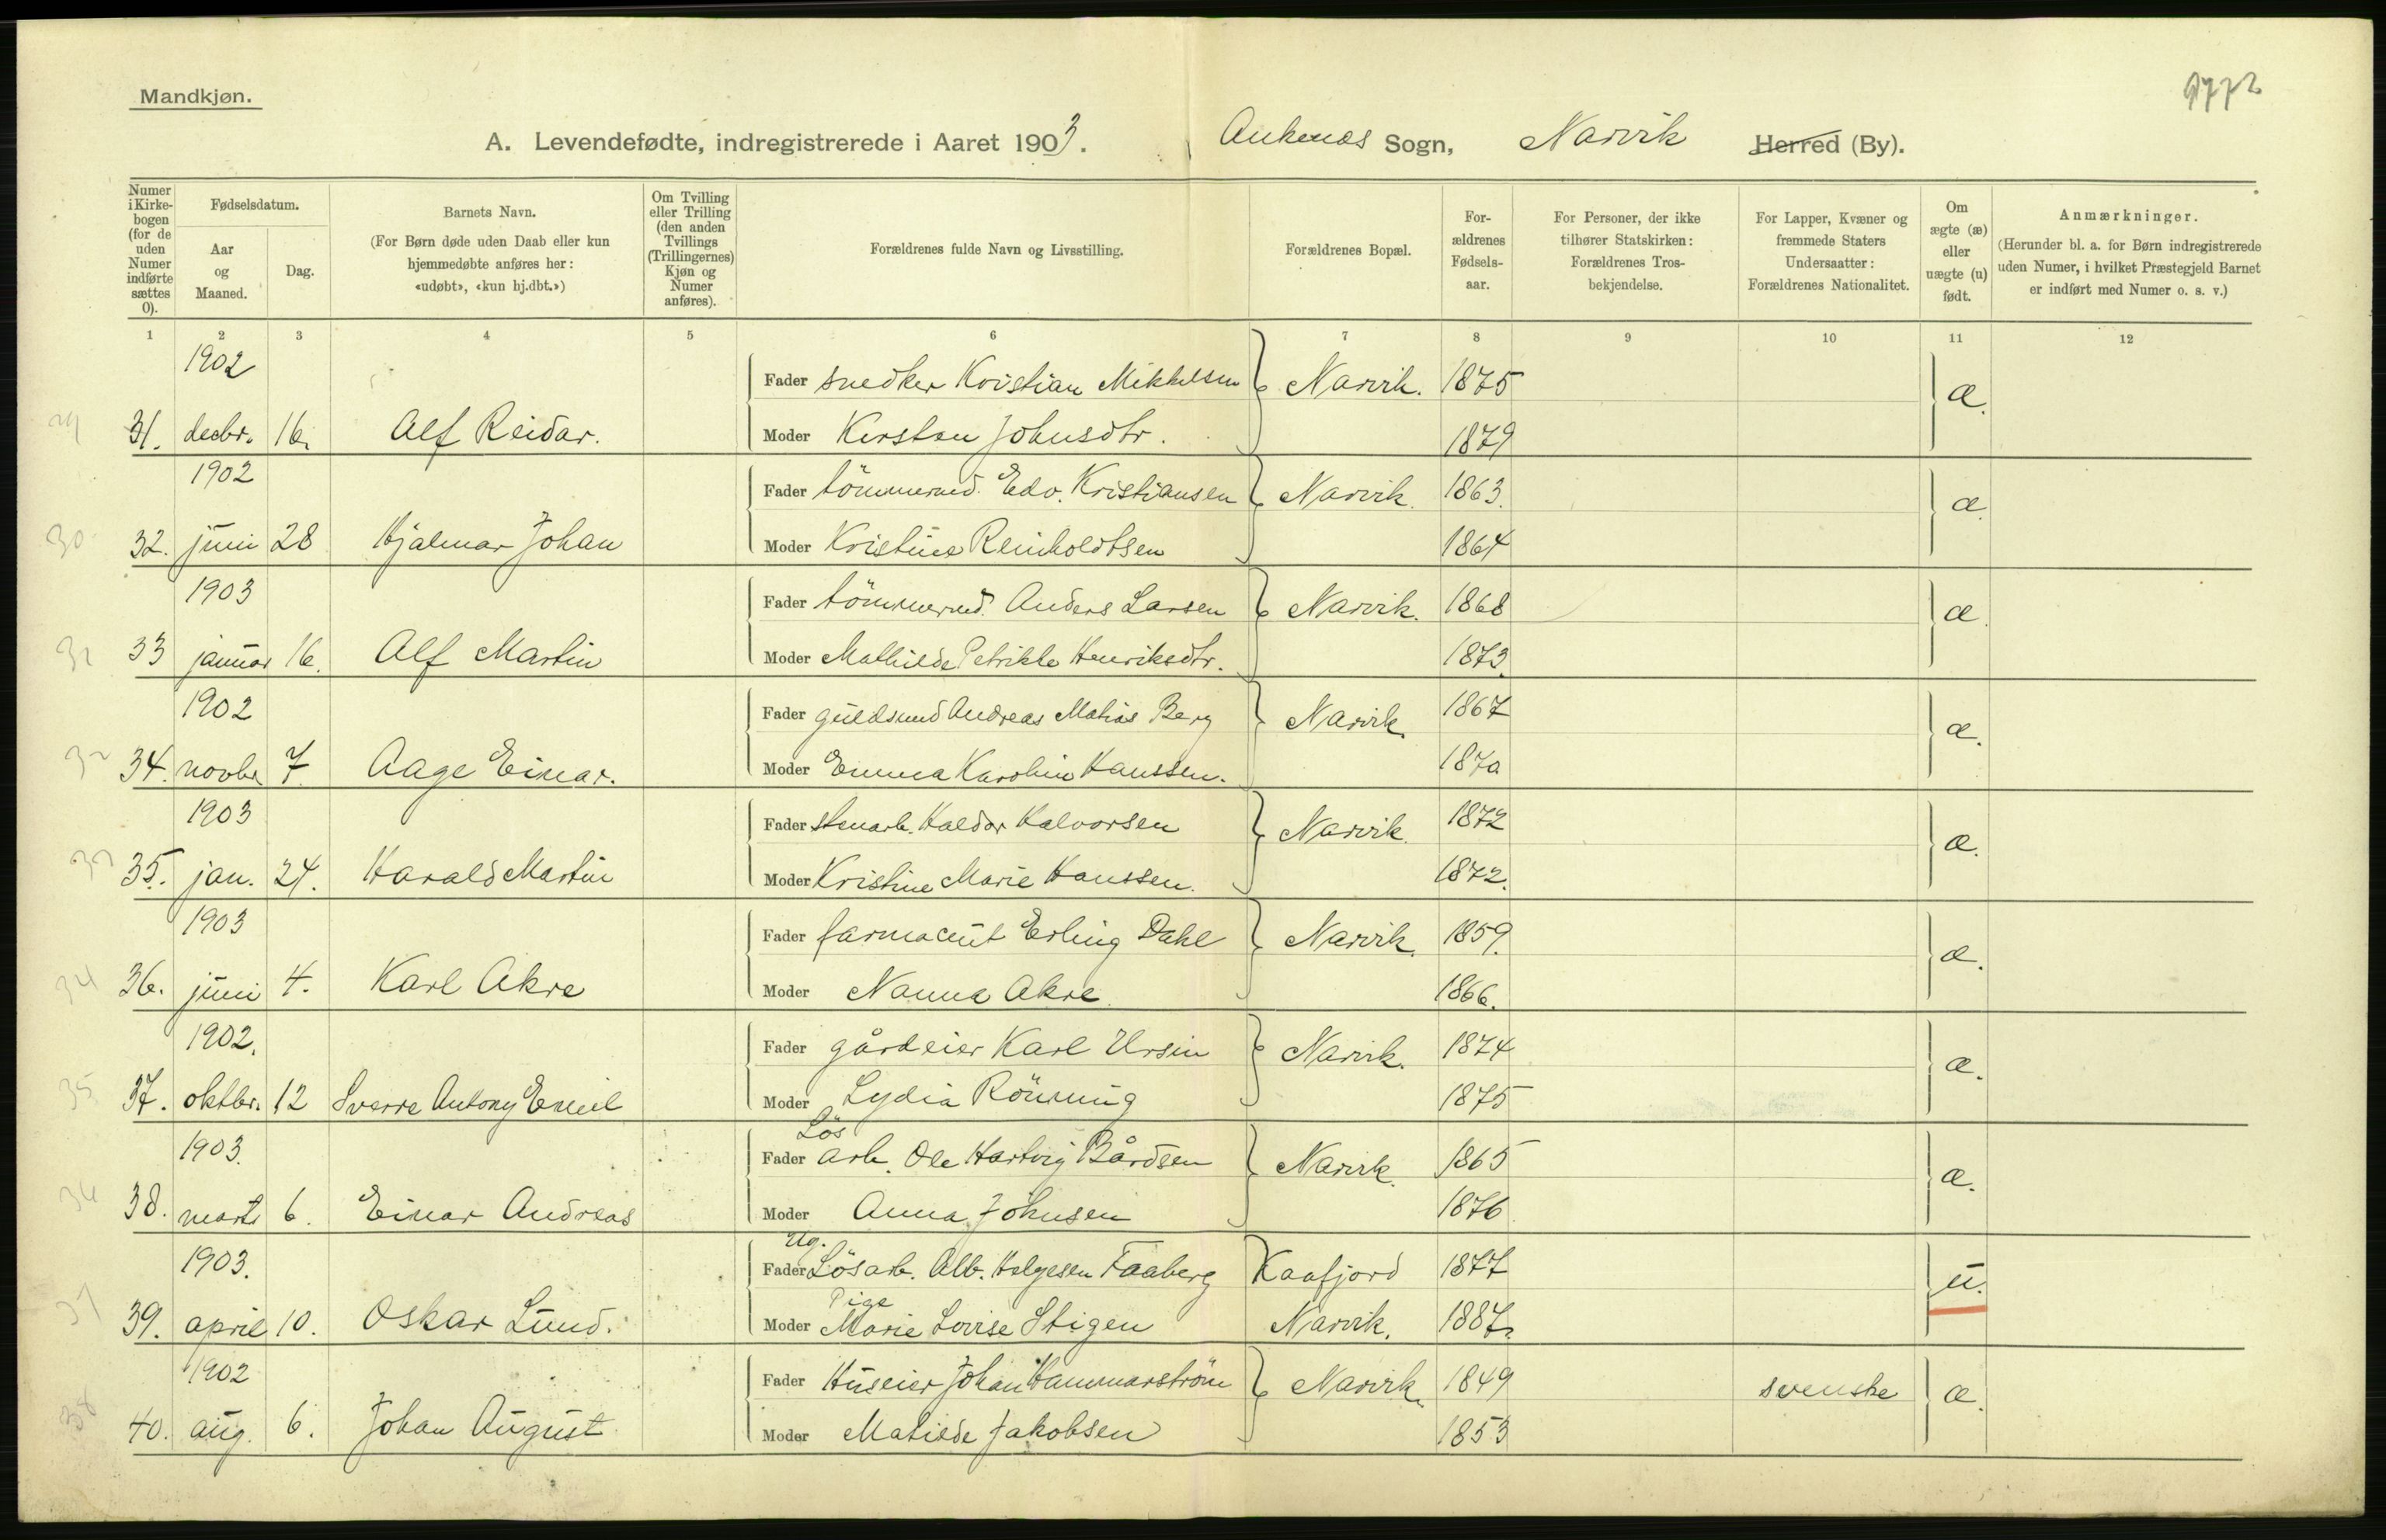 Mandkjøn.
9772
A. Levendefødte, indregistrerede i Aaret 1903. Ankenæs Sogn, Narvik Herred (By).
Numer i Kirke-bogen (for de uden Numer indførte sættes 0).
Fødselsdatum.
Aar og Maaned.
Dag.
Barnets Navn.
(For Børn døde uden Daab eller kun hjemmedøbte anføres her: «udøbt», «kun hj.dbt.»)
Om Tvilling eller Trilling (den anden Tvillings (Trillingernes) Kjøn og Numer anføres).
Forældrenes fulde Navn og Livsstilling.
Forældrenes Bopæl.
For-ældrenes Fødsels-aar.
For Personer, der ikke tilhører Statskirken: Forældrenes Tros-bekjendelse.
For Lapper, Kvæner og fremmede Staters Undersaatter: Forældrenes Nationalitet.
Om ægte (æ) eller uægte (u) født.
Anmærkninger.
(Herunder bl. a. for Børn indregistrerede uden Numer, i hvilket Præstegjeld Barnet er indført med Numer o. s. v.)
1 2 3 4 5 6 7 8 9 10 11 12
1902
Fader snedker Kristian Mikkelsen Narvik. 1875 æ.
29 31. decbr. 16. Alf Reidar. Moder Kirsten Johnsdtr. 1879
1902
Fader tömmermd. Edv. Kristiansen Narvik. 1863. æ
30 32. juni 28 Hjalmar Johan Moder Kristine Reinholdtsen 1864
1903
Fader tömmermd. Anders Larsen Narvik. 1868 æ.
31 33 januar 16. Alf Martin Moder Mathilde Petrikke Henriksdtr. 1873.
1902
Fader guldsmed Andreas Matias Berg Narvik. 1867 æ.
32 34. novbr 7. Aage Einar. Moder Emma Karoline Hanssen. 1870
1903
Fader stenarb. Haldor Halvorsen Narvik. 1872 æ.
33 35. jan. 24. Harald Martin Moder Kristine Marie Hanssen. 1872.
1903
Fader farmaceut Erling Dahl Narvik. 1859. æ.
34 36. juni 4. Karl Akre Moder Nanna Akre. 1866.
1902.
Fader gårdeier Karl Ursin Narvik. 1874 æ.
35 37. oktbr. 12 Sverre Antony Emil Moder Lydia Rönning 1875
1903.
Lös
Fader arb. Ole Hartvig Bårdsen Narvik. 1865 æ.
36 38. marts 6. Einar Andreas Moder Anna Johnsen 1876
1903.
Ug.
Fader Lösarb. Alb. Helgesen Faaberg Kaafjord 1877 u.
Pige
37 39. april 10. Oskar Lund. Moder Marie Lovise Stigen Narvik. 1887.
1902
Fader Huseier Johan Hammarström Narvik. 1849 svenske æ.
38 40. aug. 6. Johan August Moder Matilde Jakobsen 1853